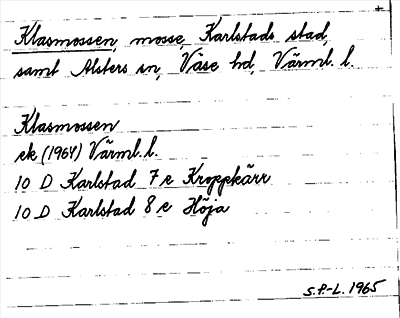 Klasmossen, mosse, Karlstads stad,
samt Alsters sn, Väse hd, Värml. l.
Klasmossen
ek (1964) Värml. l.
10 D Karlstad 7 e Kroppkärr
10 D Karlstad 8 e Höja
S.P.-L. 1965